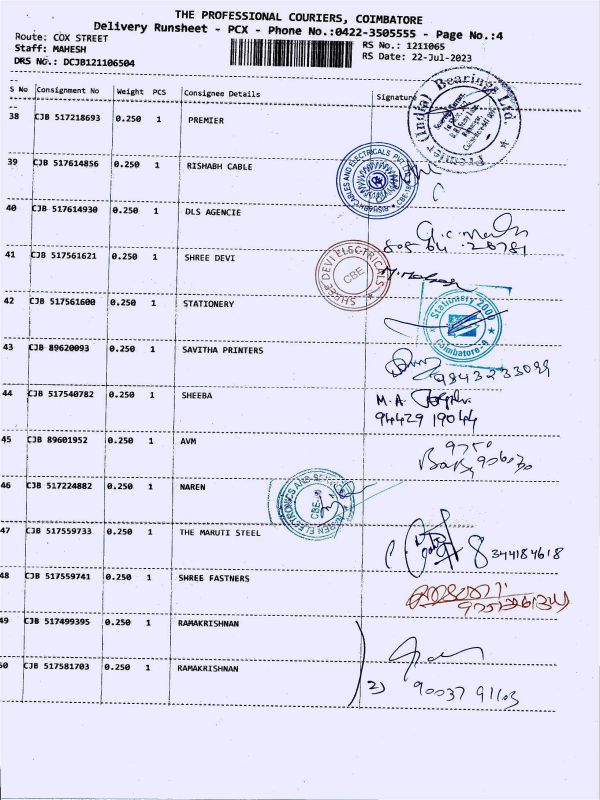 THE PROFESSIONAL COURIERS, COIMBATORE
Delivery Runsheet - PCX - Phone No.:0422-3505555 - Page No.:4
Route: COX STREET
RS No.: 1211065
Staff: MAHESH
RS Date: 22-Jul-2023
DRS No.: DCJB121106504
S No Consignment No Weight PCS Consignee Details Signature
38 CJB 517218693 0.250 1 PREMIER
Premier (India) Bearings Ltd.
39 CJB 517614856 0.250 1 RISHABH CABLE
RISHABH CABLES AND ELECTRICALS PVT
40 CJB 517614930 0.250 1 DLS AGENCIE
41 CJB 517561621 0.250 1 SHREE DEVI
SHREE DEVI ELECTRICALS
CBE
42 CJB 517561600 0.250 1 STATIONERY
Stationery 2000
Coimbatore
43 CJB 89620093 0.250 1 SAVITHA PRINTERS
9843233099
44 CJB 517540782 0.250 1 SHEEBA
M.A.
94429 19044
45 CJB 89601952 0.250 1 AVM
46 CJB 517224882 0.250 1 NAREN
NAREN ELECTRONICS AND
CBE
47 CJB 517559733 0.250 1 THE MARUTI STEEL
8344184618
48 CJB 517559741 0.250 1 SHREE FASTNERS
49 CJB 517499395 0.250 1 RAMAKRISHNAN
50 CJB 517581703 0.250 1 RAMAKRISHNAN
2)
90037 91103